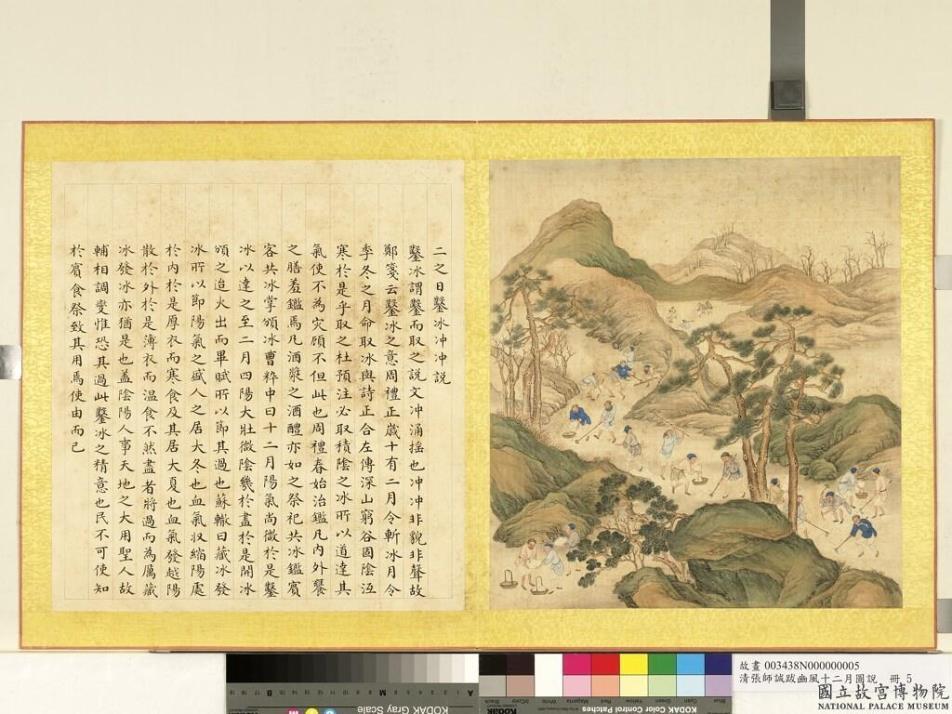 二之日鑿冰冲冲說
鑿冰謂鑿而取之說文冲涌搖也冲冲非貌非聲故
鄭箋云鑿冰之意周禮正歲十有二月令斬冰月令
季冬之月命取冰與詩正合左傳深山窮谷固陰沍
寒於是乎取之杜預注必取積陰之冰所以道達其
氣使不為灾顧不但此也周禮春始治鑑凡內外饔
之膳羞鑑焉凡酒漿之酒醴亦如之祭祀共冰鑑賓
客共冰掌頒冰曹粹中曰十二月陽氣尚微於是鑿
冰以達之至二月四陽大壯微陰幾於盡於是開冰
頒之迨火出而畢賦所以節其過也蘇轍曰藏冰發
冰所以節陽氣之盛人之居大冬也血氣収縮陽處
於內於是厚衣而寒食及其居大夏也血氣發越陽
散於外於是薄衣而溫食不然盡者將過而為厲藏
冰發冰亦猶是也盖陰陽人事天地之大用聖人故
輔相調燮惟恐其過此鑿冰之精意也民不可使知
於賓食祭致其用焉使由而已
故畫 003438N000000005
清張師誠跋豳風十二月圖說 冊 5
國立故宮博物院
NATIONAL PALACE MUSEUM
KODAK Gray Scale
KODAK Color Control Patches